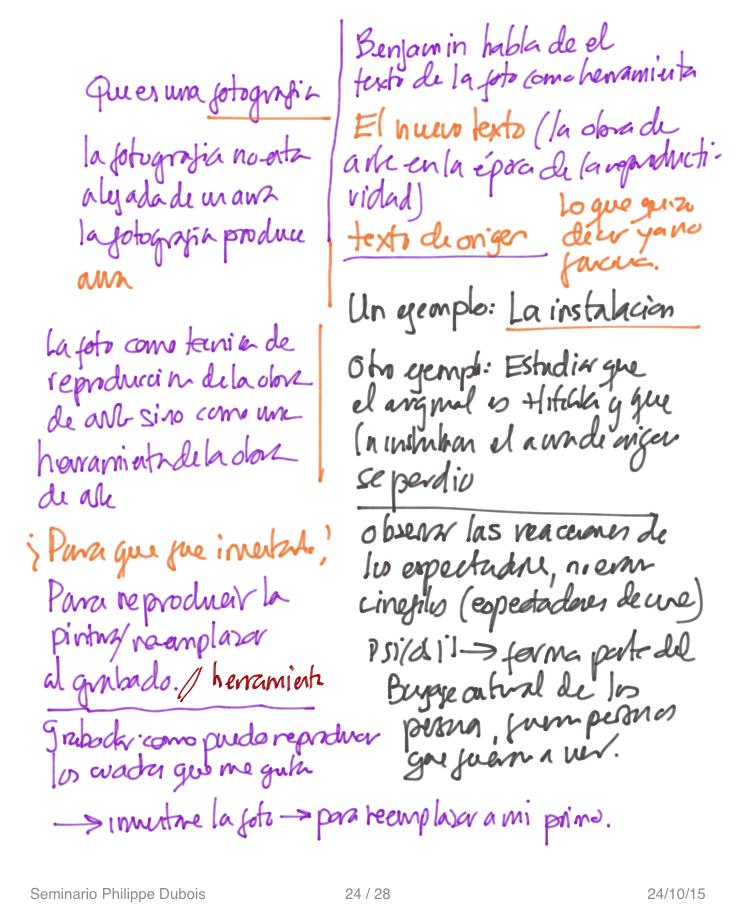 Que es una fotografia
la fotografia no esta
alejada de un aura
la fotografia produce
aura
La foto como tecnica de
reproduccion de la obra
de arte sino como una
herramienta de la obra
de arte
¿Para que fue inventada?
Para reproducir la
pintura/reemplazar
al grabado. // herramienta
Grabador: como puedo reproducir
los cuadros que me gusta
→ inventare la foto → para reemplazar a mi primo.
Benjamin habla de el
texto de la foto como herramienta
El nuevo texto (la obra de
arte en la época de la reproducti-
vidad)
texto de origen
Lo que quiso
decir ya no
funciona.
Un ejemplo: La instalacion
Otro ejemplo: Estudiar que
el original es Hitchk y que
la el aura de origen
se perdio
observar las reacciones de
los espectadores, no eran
cinefilos (espectadores de cine)
→ forma parte del
Bagaje cultural de los
que fueron a ver.
Seminario Philippe Dubois
24 / 28
24/10/15